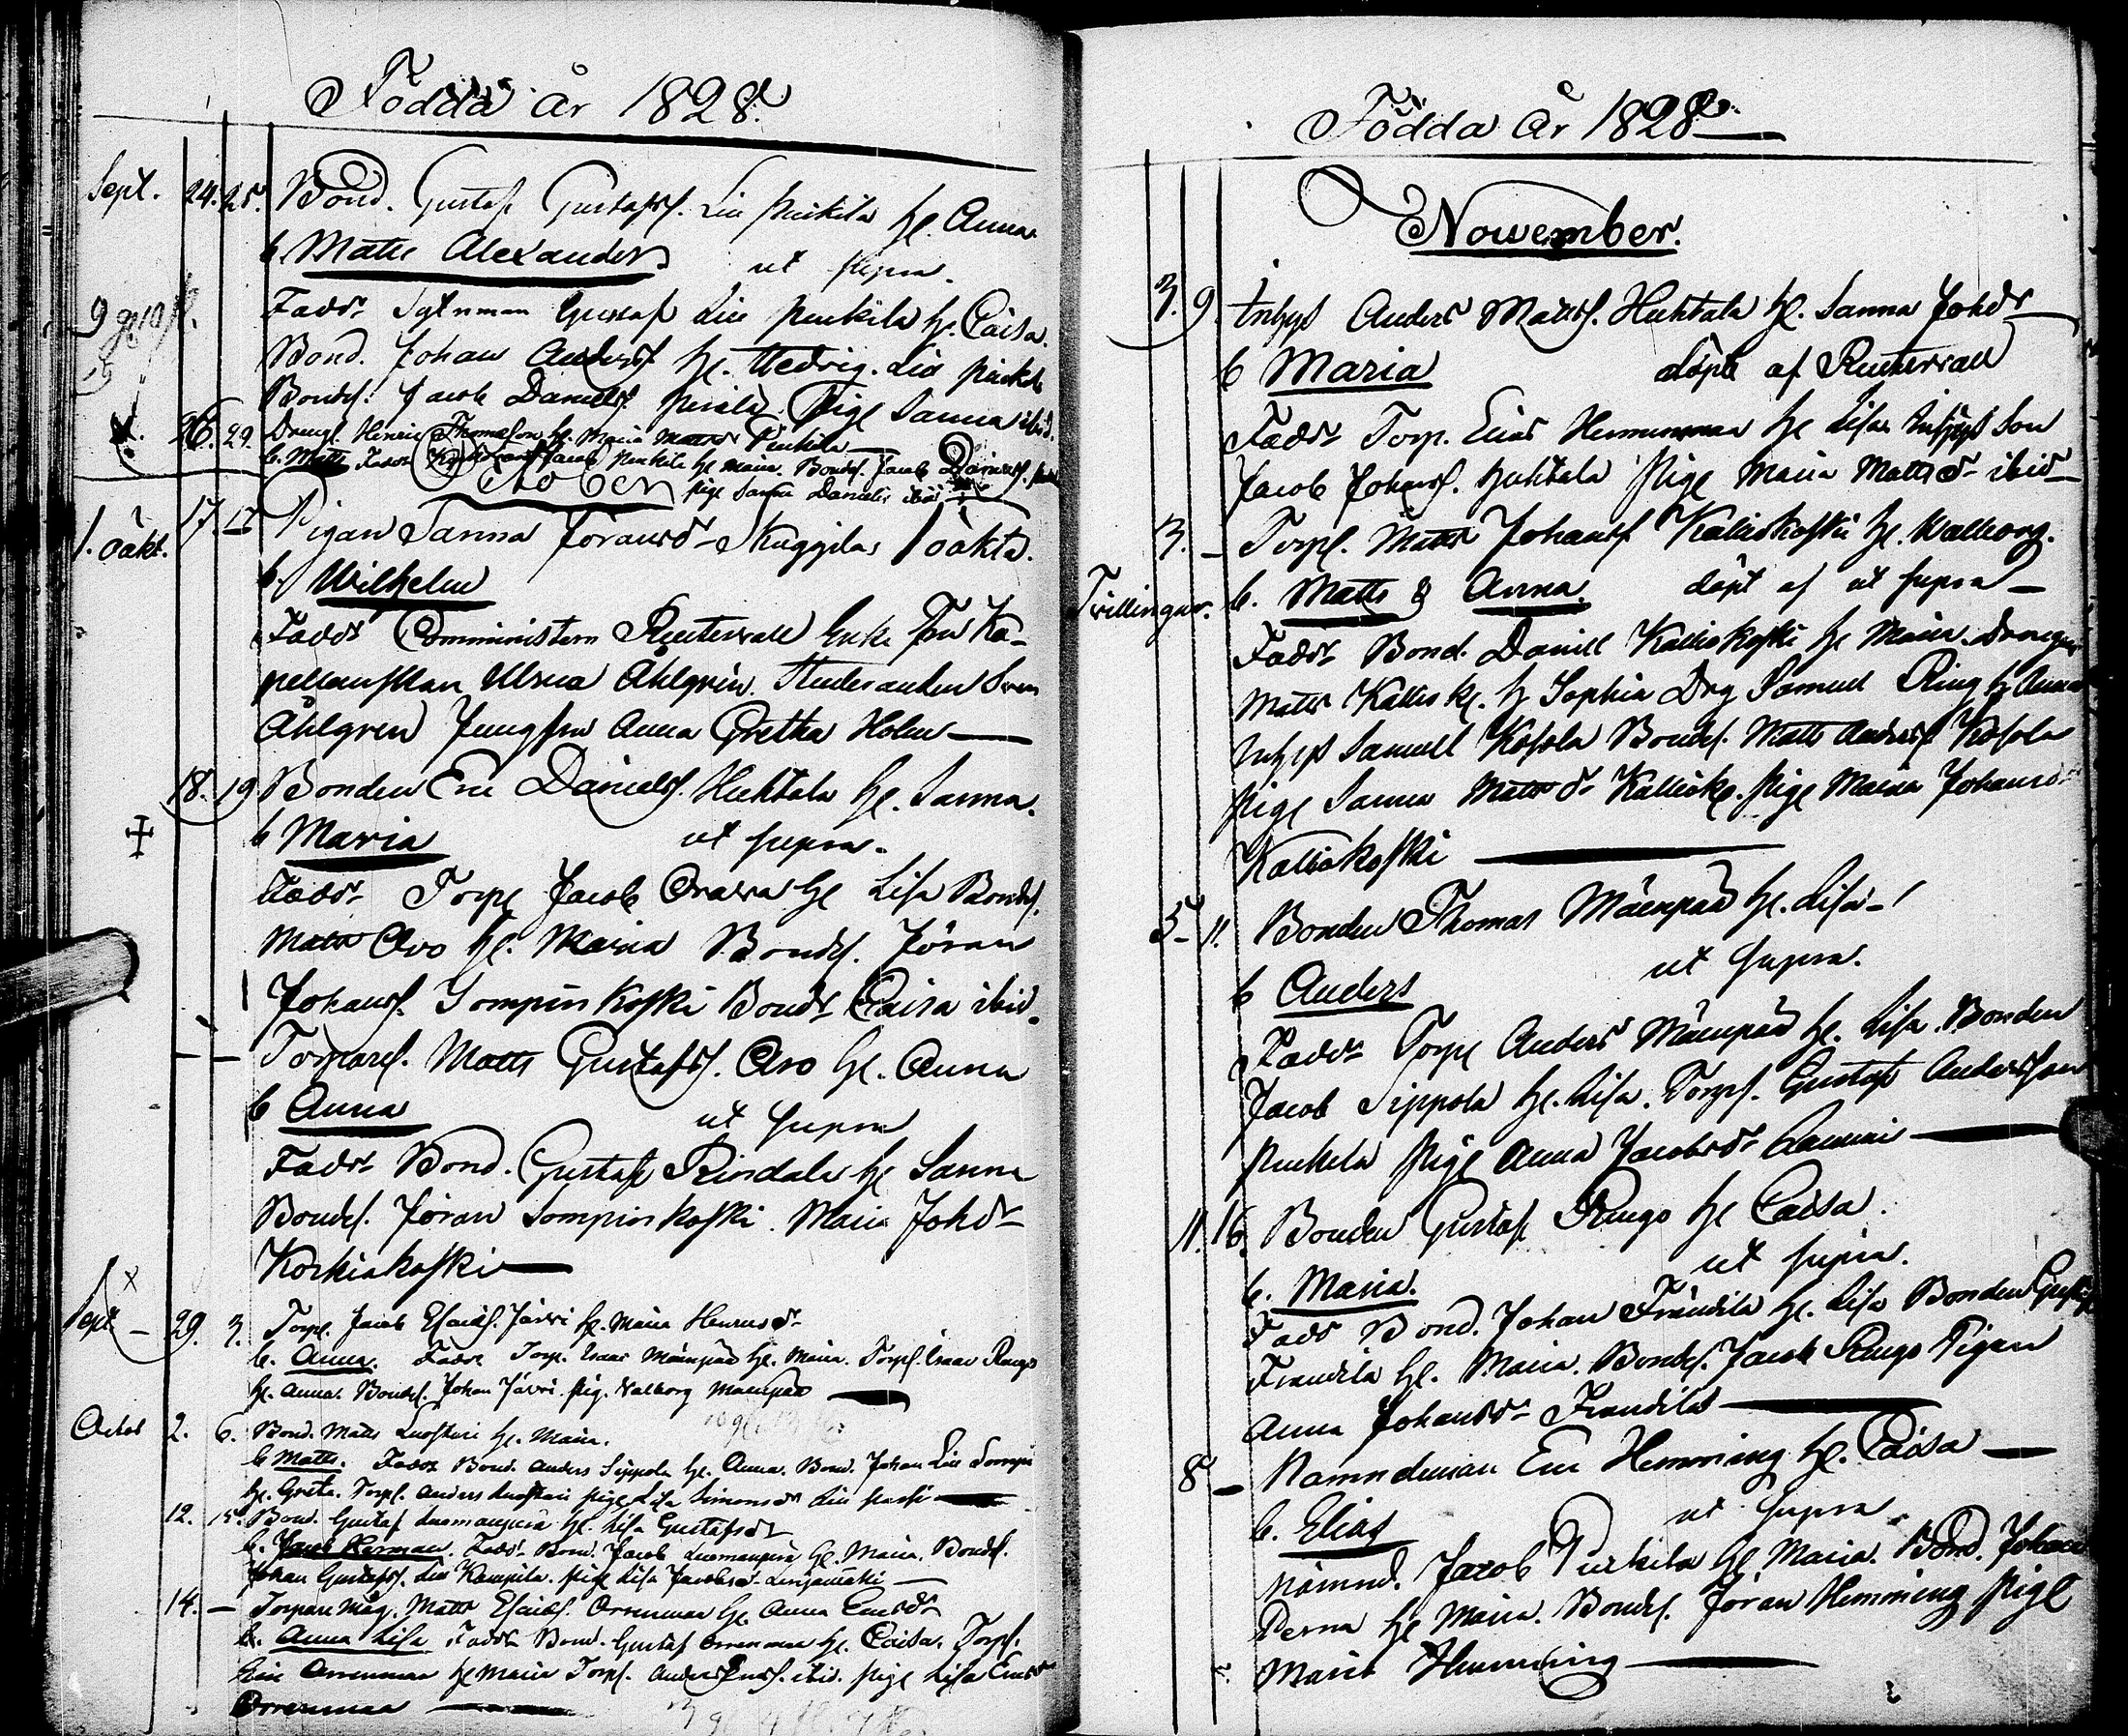 Födda år 1828.
Sept. 24. 25. Bond. Gustaf Gustafss. Lill Penkila h. Anna
b. Matts Alexander ut supra.
Faddr Gustaf Lill Penkila h. Caisa.
Bond. Johan Anderss h. Hedvig. Lill
Bonds. Jacob Daniels. Pige Sanna ibid.
26. 29. Dreng. Henric Thomasson h. Maria Mattsdr Penkila
b. Matts Faddr Jacob Penkila h. Maria. Bonds. Jacob Daniels.
October pige Sanna Danielsdr ibid
1. oäkt. 17. 17 Pigan Sanna Göransdr Skuggila 1 oäkta.
b. Wilhelm
Faddr Comministern Reuterwall Enke Fru Ka-
pellanskan Ulrica Ahlgrén. Studeranden Sven
Åhlgren Jungfru Anna Gretha Holm
18. 19 Bonden Eric Daniels. Huhtala h. Sanna.
b Maria ut supra.
Faddr Torp Jacob Orava h. Lisa Bonds.
Matts Aro h. Maria Bonds. Jöran
Johanss. Sompinkoski Bondr Caisa ibid.
– – Torpares. Matts Gustafss. Aro h. Anna
b Anna ut supra
Faddr Bond. Gustaf Rindala h Sanna
Bonds. Jöran Sompinkoski. Maria Johdr
Korkiakoski
Sept – 29. 3. Torp. Jacob Esaias. Järvi h. Maria Henricsdr
b. Anna. Faddr Torp. Isaac Mäenpää h. Maria. Torps. Isaac Runge
h. Anna. Bonds. Johan Järvi. pig. Valborg Mäenpää
Octob 2. 6. Bond. Matts Luostari h. Maria.
b Matts. Faddr Bond. Anders Sippola h. Anna. Bond. Johan Lill Sompi
h. Greta. Torps. Anders Luostari pige Lisa Simonsdr Lill
12. 15. Bond. Gustaf Luomanperä h. Lisa Gustafsdr
b. Jacob Herman. Faddr Bond. Jacob Luomanperä h. Maria. Bonds.
Johan Gustafss. Lill Kampila. pige Lisa Jacobsdr
14. – Torpare Måg. Matts Esaias. Orrenmaa h. Anna Ericsdr
b. Anna Lisa Faddr Bond. Gustaf Orrenmaa h. Caisa. Torp.
Eric Orrenmaa h Maria Torps. Anders Ericss. ibid. pige Lisa Ericsdr
Orrenmaa
Födda år 1828
November.
3. 9. Inhys Anders Matts. Huhtala h. Sanna Johdr
b Maria döpt af Reuterwall
Faddr Torp. Elias Hemminmaa h Lisa Inhys Son
Jacob Johanss. Huhtala Pige Maria Mattsdr ibid
3. – Torps. Matts Johanss Kalliokoski h. Walborg.
Tvillingar. b. Matts & Anna. döpt af ut supra
Faddr Bond. Daniel Kalliokoski h Maria. Drengen
Matts Kalliok. h Sophia Drg Samuel Ring h Anna
Inhys Samuel Kosola Bonds. Matts Anderss Kosola
Pige Sanna Mattsdr Kalliok. Pige Maria Johansdr
Kalliokoski
5 – 11. Bonden Thomas Mäenpää h. Lisa
ut supra.
b Anders
Faddr Torp Anders Mäenpää h. Lisa. Bonden
Jacob Sippola h. Lisa. Torps. Gustaf Andersson
Penkila Pige Anna Jacobsdr
11. 16. Bonden Gustaf Runge h Caisa.
ut supra.
b. Maria.
Faddr Bond. Johan Frändilä h. Lisa Bonden Gustaf
Frändilä h. Maria. Bonds. Jacob Runge Pigan
Anna Johansdr Frändilä
8 – Nämndeman Eric Hemming h. Caisa
ut supra.
b. Elias
Nämnd. Jacob Purkila h Maria. Bond. Johan
Perna h Maria. Bonds. Jöran Hemming Pige
Maria Hemming